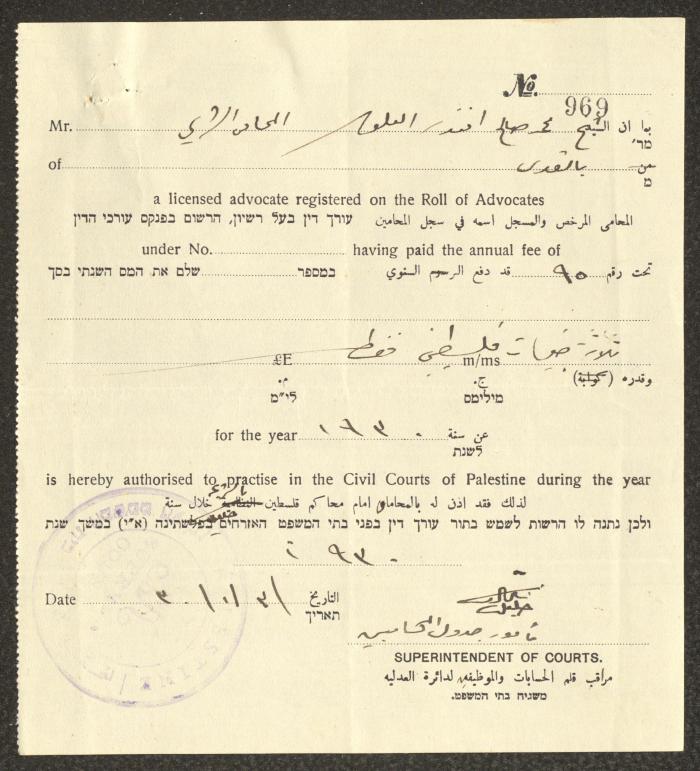 No. 969
Mr. بما ان الشيخ محمد صالح افندي المحامي الشرعي
מר'
of من بالقدس
מ
a licensed advocate registered on the Roll of Advocates
المحامى المرخص والمسجل اسمه في سجل المحامين עורך דין בעל רשיון, הרשום בפנקס עורכי הדין
under No. having paid the annual fee of
تحت رقم ٩٥ قد دفع الرسوم السنوي במספר שלם את המס השנתי בסך
ثلاثة جنيهات فلسطيني فقط
£E m/ms
وقدره (كوليه) ج. م.
מיליםס לי"מ
for the year ١٩٣٠ عن سنة
לשנת
is hereby authorised to practise in the Civil Courts of Palestine during the year
لذلك فقد اذن له بالمحاماه امام محاكم فلسطين النظامية خلال سنة
ולכן נתנה לו הרשות לשמש בתור עורך דין בפני בתי המשפט האזרחים בפלשתינה (א"י) במשך שנת
١٩٣٠
Date ٣٠/١/٣١ التاريخ
תאריך
مأمور جدول المحامين
SUPERINTENDENT OF COURTS.
مراقب قلم الحسابات والموظفين لدائرة العدلية
משגיח בתי המשפט.